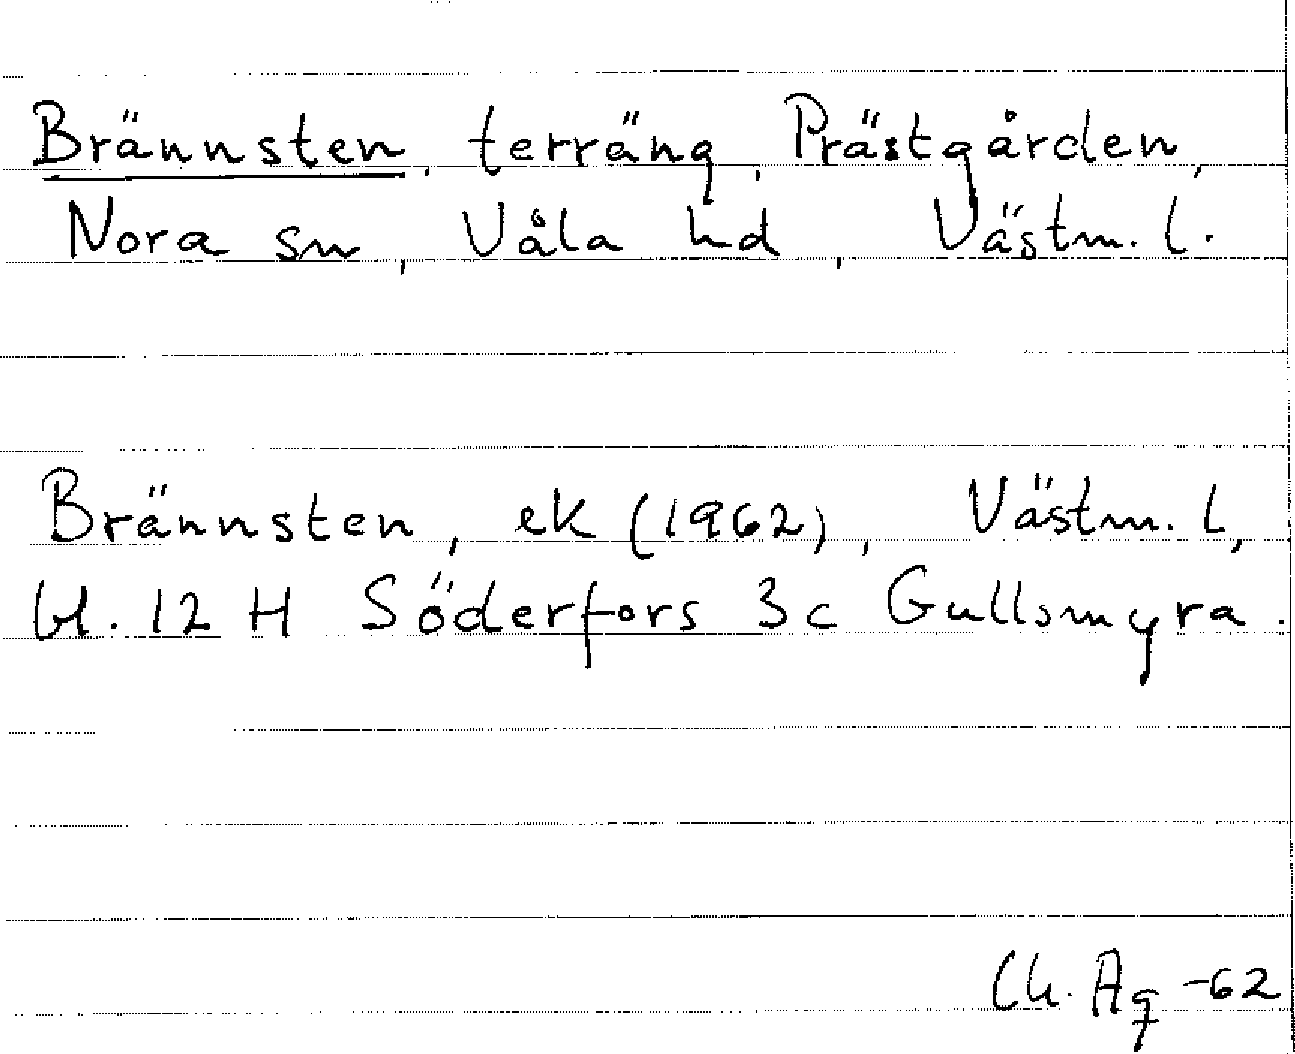 Brännsten, terräng, Prästgården,
Nora sn, Våla hd, Västm. l.
Brännsten, ek (1962), Västm. l,
bl. 12 H Söderfors 3c Gullsmyra.
Ch. Ag -62